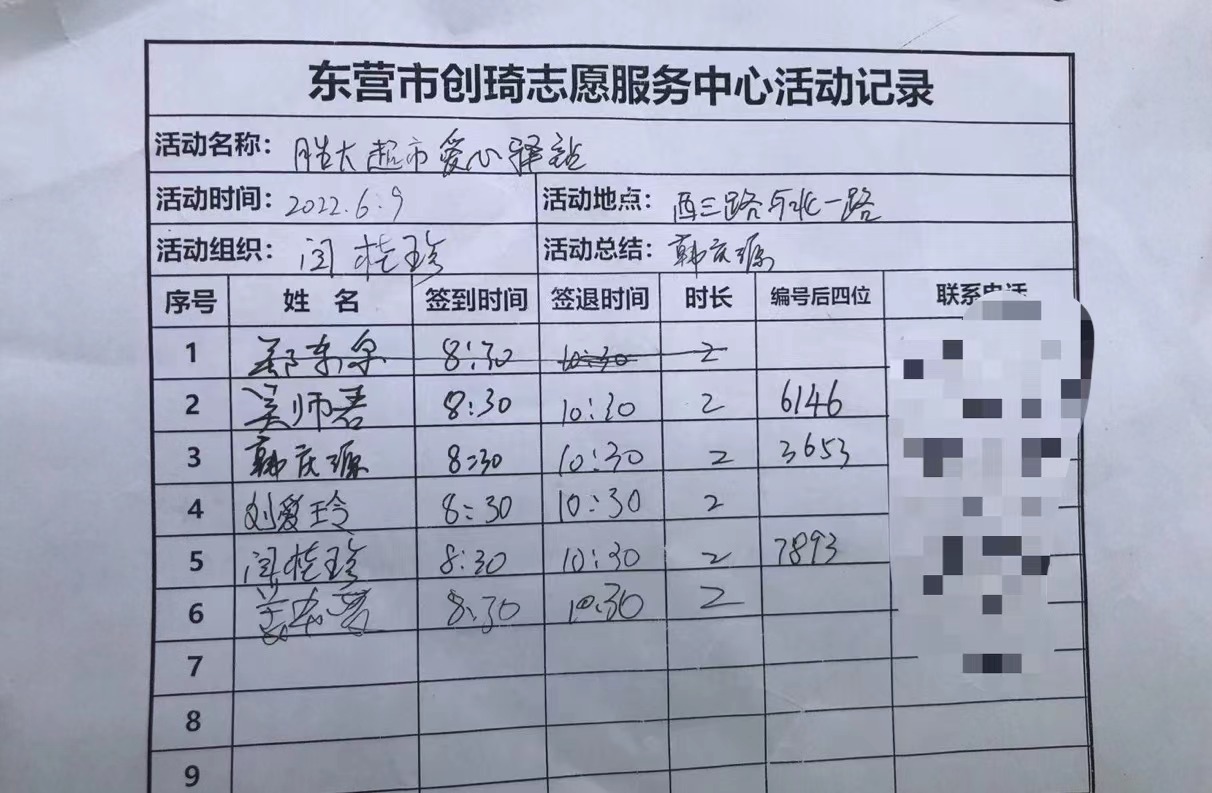 东营市创琦志愿服务中心活动记录
活动名称：胜大超市爱心驿站
活动时间：2022.6.9 活动地点：西三路与北一路
活动组织：闫桂珍 活动总结：韩庆源
序号 姓名 签到时间 签退时间 时长 编号后四位 联系电话
1 郑东 8:30 10:30 2
2 吴师君 8:30 10:30 2 6146
3 韩庆源 8:30 10:30 2 3653
4 刘爱玲 8:30 10:30 2
5 闫桂珍 8:30 10:30 2 7893
6 8:30 10:30 2
7
8
9